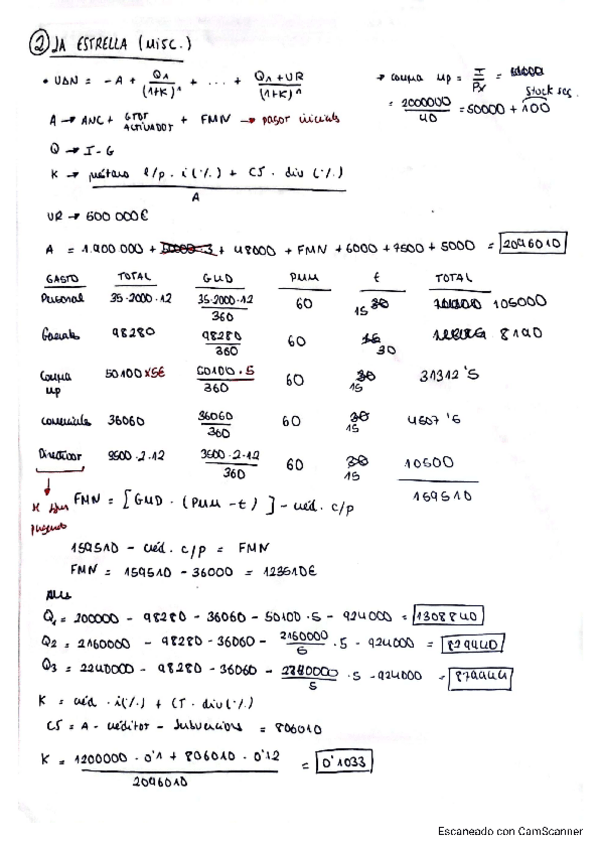 ② LA ESTRELLA (MISC.)
• VAN = -A + Q1/(1+K)^1 + ... + Q1+VR/(1+K)^n
→ compra mp = I/Px =
= 2000000/40 = 50000 + 100
Stock seg.
A → ANC + GTOS ACTIVADOS + FMN → pagos iniciales
Q → I - G
K → préstamo l/p · i(%) + CS · div (%) / A
VR → 600 000€
A = 1.900 000 + 48000 + FMN + 6000 + 7500 + 5000 = 2096010
GASTO TOTAL GMD PMM t TOTAL
Personal 35·2000·12 35·2000·12/360 60 15 105000
Generales 98280 98280/360 60 30 8190
Compra mp 50100 x5€ 50100·5/360 60 15 31312'5
comerciales 36060 36060/360 60 15 4507'5
Directivos 3500·2·12 3500·2·12/360 60 15 10500
159510
FMN = [GMD · (PMM - t)] - créd. c/p
159510 - créd. c/p = FMN
FMN = 159510 - 36000 = 123510€
Q1 = 200000 - 98280 - 36060 - 50100·5 - 924000 = 1308840
Q2 = 2160000 - 98280 - 36060 - 2160000/5 · 5 - 924000 = 829440
Q3 = 2240000 - 98280 - 36060 - 2240000/5 · 5 - 924000 =
K = créd · i(%) + CS · div(%)
CS = A - créditos - subvenciones = 806010
K = 1200000 · 0'1 + 806010 · 0'12 / 2096010 = 0'1033
Escaneado con CamScanner